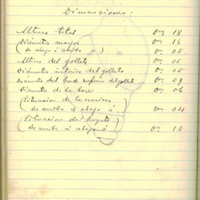 Dimensiones:
Altura total 0m 18
Diámetro mayor 0m 16
(de abajo á arriba 0m 05
Altura del gollete 0m 05
Diámetro interior del gollete 0m 05
Diámetro del borde superior del gollete 0m 07
Diámetro de la base 0m 06
Situación de la
(de arriba á abajo 0m
Situación del
(de arriba á abajo 0m 10